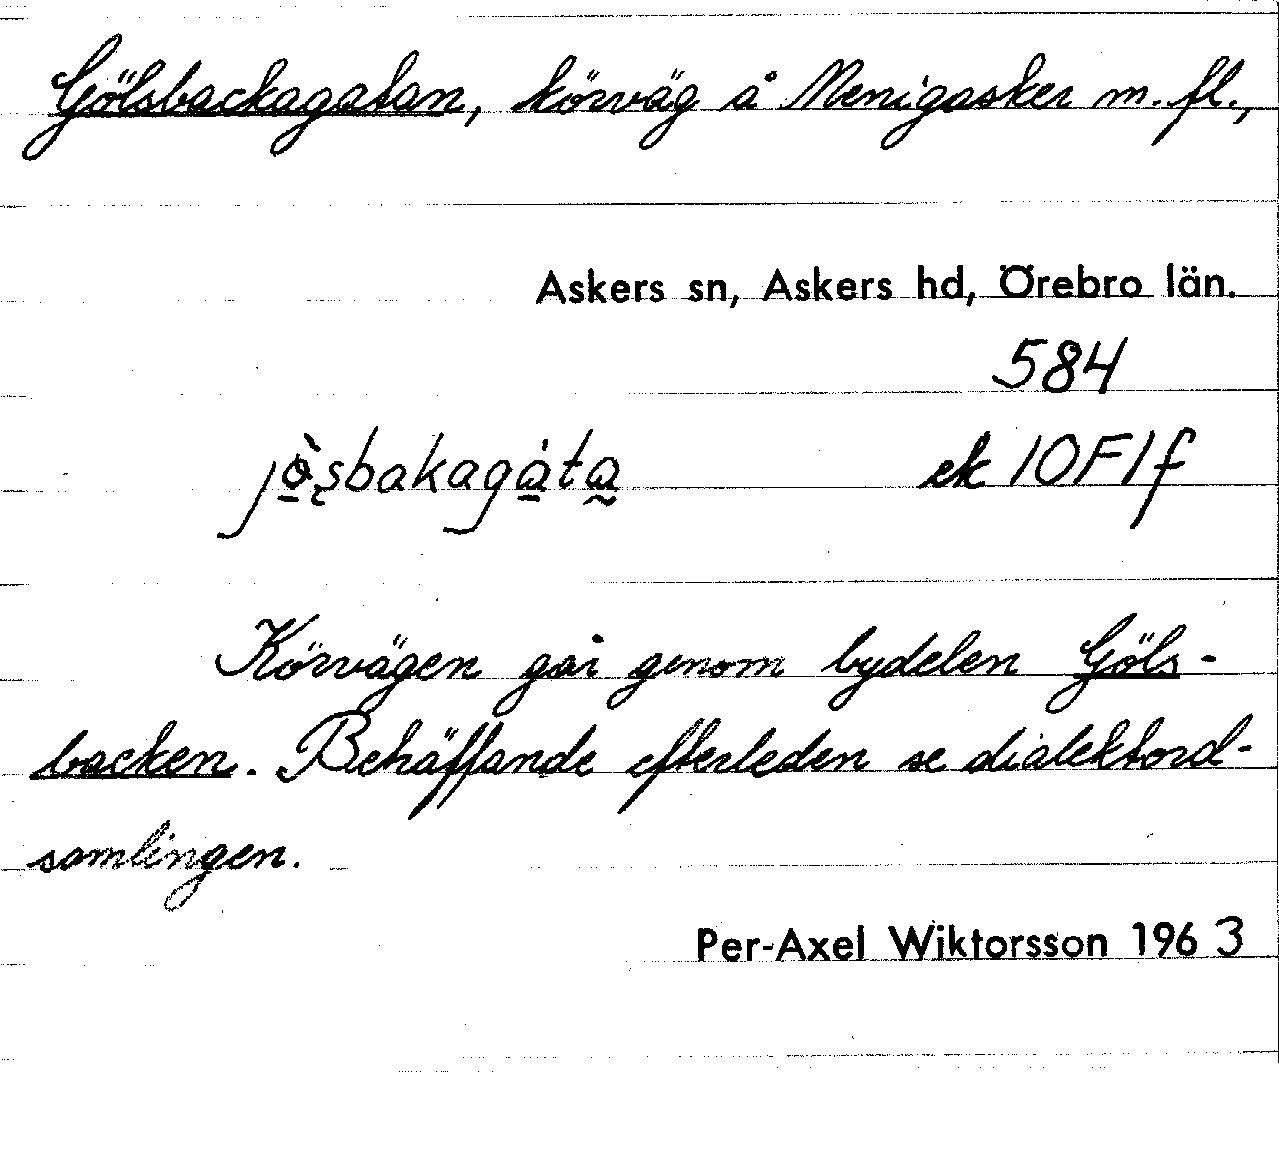 Gölsbackagatan, körväg å Menigasker m.fl.,
Askers sn, Askers hd, Örebro län.
584
ek 10F1f
Körvägen går genom bydelen Göls-
backen. Behäffande efterleden se dialektord-
samlingen.
Per-Axel Wiktorsson 1963